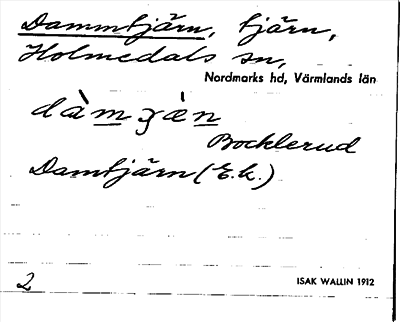 Dammtjärn, tjärn,
Holmedals sn,
Nordmarks hd, Värmlands län
dàmʒæ̀n
Bocklerud
Damtjärn (E.k.)
2
ISAK WALLIN 1912